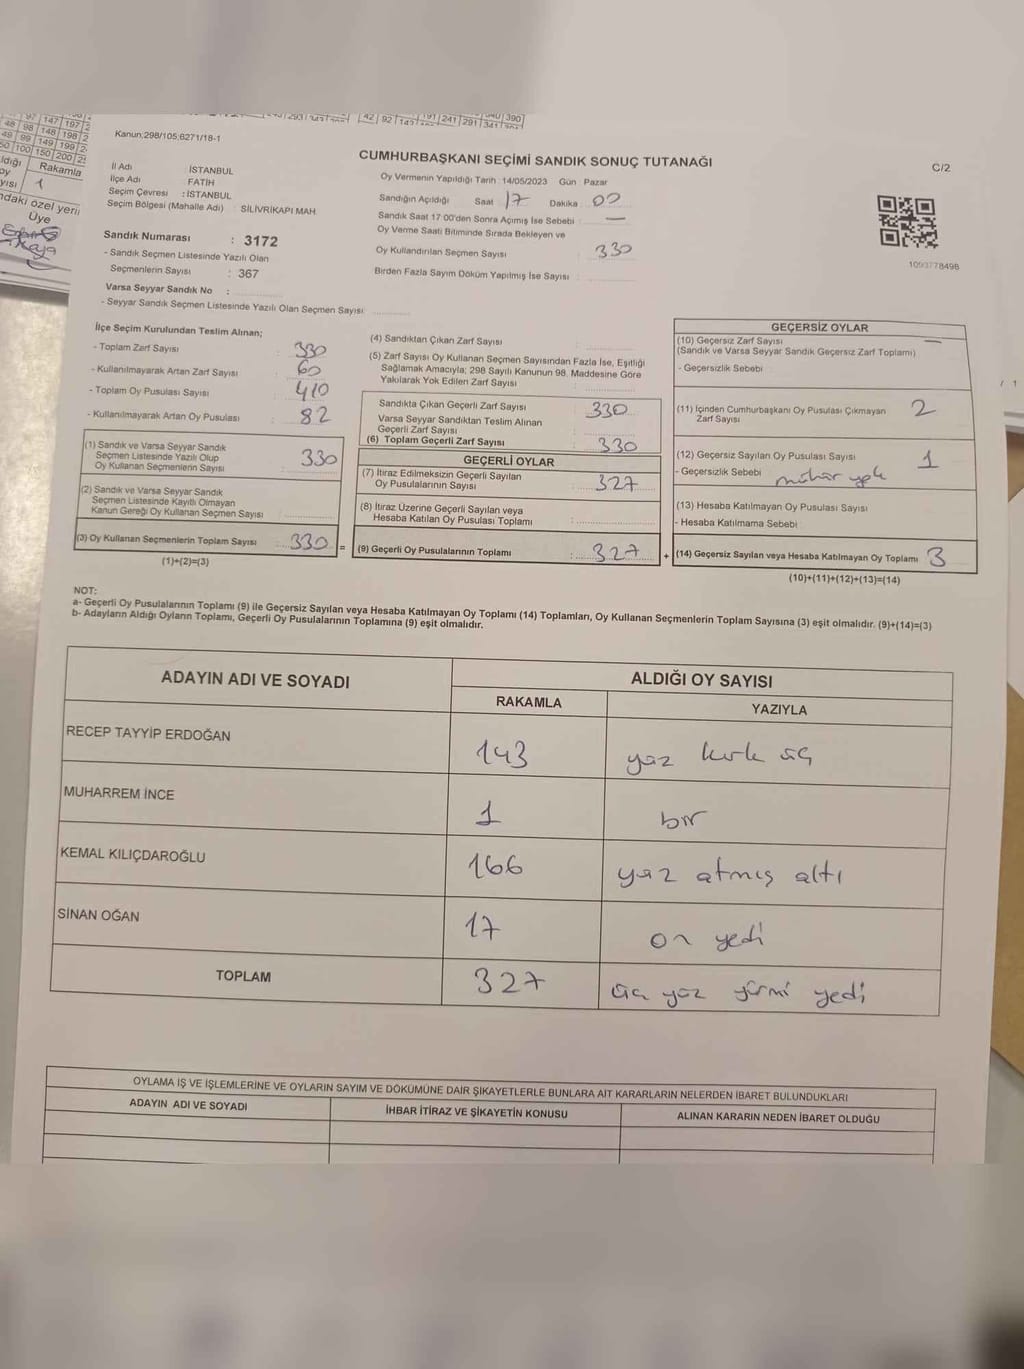 Kanun;298/105;6271/18-1
CUMHURBAŞKANI SEÇİMİ SANDIK SONUÇ TUTANAĞI
C/2
İl Adı : İSTANBUL
İlçe Adı : FATİH
Seçim Çevresi : İSTANBUL
Seçim Bölgesi (Mahalle Adı) : SİLİVRİKAPI MAH.
Sandık Numarası : 3172
- Sandık Seçmen Listesinde Yazılı Olan
Seçmenlerin Sayısı : 367
Varsa Seyyar Sandık No :
- Seyyar Sandık Seçmen Listesinde Yazılı Olan Seçmen Sayısı
Oy Vermenin Yapıldığı Tarih : 14/05/2023 Gün Pazar
Sandığın Açıldığı Saat 17 Dakika 00
Sandık Saat 17:00'den Sonra Açımış İse Sebebi : —
Oy Verme Saati Bitiminde Sırada Bekleyen ve
Oy Kullandırılan Seçmen Sayısı : 330
Birden Fazla Sayım Döküm Yapılmış İse Sayısı :
1093778498
İlçe Seçim Kurulundan Teslim Alınan;
- Toplam Zarf Sayısı : 330
- Kullanılmayarak Artan Zarf Sayısı : 60
- Toplam Oy Pusulası Sayısı : 410
- Kullanılmayarak Artan Oy Pusulası : 82
(1) Sandık ve Varsa Seyyar Sandık
Seçmen Listesinde Yazılı Olup
Oy Kullanan Seçmenlerin Sayısı : 330
(2) Sandık ve Varsa Seyyar Sandık
Seçmen Listesinde Kayıtlı Olmayan
Kanun Gereği Oy Kullanan Seçmen Sayısı :
(3) Oy Kullanan Seçmenlerin Toplam Sayısı : 330 =
(1)+(2)=(3)
(4) Sandıktan Çıkan Zarf Sayısı :
(5) Zarf Sayısı Oy Kullanan Seçmen Sayısından Fazla İse, Eşitliği
Sağlamak Amacıyla; 298 Sayılı Kanunun 98. Maddesine Göre
Yakılarak Yok Edilen Zarf Sayısı :
Sandıkta Çıkan Geçerli Zarf Sayısı : 330
Varsa Seyyar Sandıktan Teslim Alınan
Geçerli Zarf Sayısı :
(6) Toplam Geçerli Zarf Sayısı : 330
GEÇERLİ OYLAR
(7) İtiraz Edilmeksizin Geçerli Sayılan
Oy Pusulalarının Sayısı : 327
(8) İtiraz Üzerine Geçerli Sayılan veya
Hesaba Katılan Oy Pusulası Toplamı :
(9) Geçerli Oy Pusulalarının Toplamı : 327 +
GEÇERSİZ OYLAR
(10) Geçersiz Zarf Sayısı —
(Sandık ve Varsa Seyyar Sandık Geçersiz Zarf Toplamı)
- Geçersizlik Sebebi
(11) İçinden Cumhurbaşkanı Oy Pusulası Çıkmayan 2
Zarf Sayısı
(12) Geçersiz Sayılan Oy Pusulası Sayısı 1
- Geçersizlik Sebebi mühür
(13) Hesaba Katılmayan Oy Pusulası Sayısı
- Hesaba Katılmama Sebebi
(14) Geçersiz Sayılan veya Hesaba Katılmayan Oy Toplamı 3
(10)+(11)+(12)+(13)=(14)
NOT:
a- Geçerli Oy Pusulalarının Toplamı (9) ile Geçersiz Sayılan veya Hesaba Katılmayan Oy Toplamı (14) Toplamları, Oy Kullanan Seçmenlerin Toplam Sayısına (3) eşit olmalıdır. (9)+(14)=(3)
b- Adayların Aldığı Oyların Toplamı, Geçerli Oy Pusulalarının Toplamına (9) eşit olmalıdır.
ADAYIN ADI VE SOYADI ALDIĞI OY SAYISI
RAKAMLA YAZIYLA
RECEP TAYYİP ERDOĞAN 143 yüz kırk üç
MUHARREM İNCE 1 bir
KEMAL KILIÇDAROĞLU 166 yüz atmış altı
SİNAN OĞAN 17 on yedi
TOPLAM 327 üç yüz yirmi yedi
OYLAMA İŞ VE İŞLEMLERİNE VE OYLARIN SAYIM VE DÖKÜMÜNE DAİR ŞİKAYETLERLE BUNLARA AİT KARARLARIN NELERDEN İBARET BULUNDUKLARI
ADAYIN ADI VE SOYADI İHBAR İTİRAZ VE ŞİKAYETİN KONUSU ALINAN KARARIN NEDEN İBARET OLDUĞU